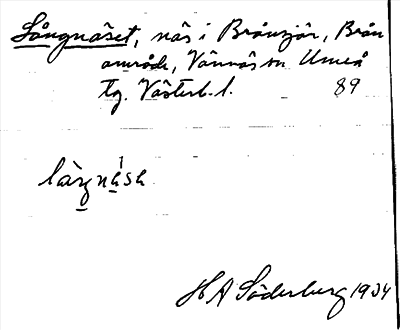 Långnäset, näs i Brånsjön, Brån
område, Vännäs sn Umeå
tg. Västerb. l. 89
làŋnä́sə
H A Söderberg 1934